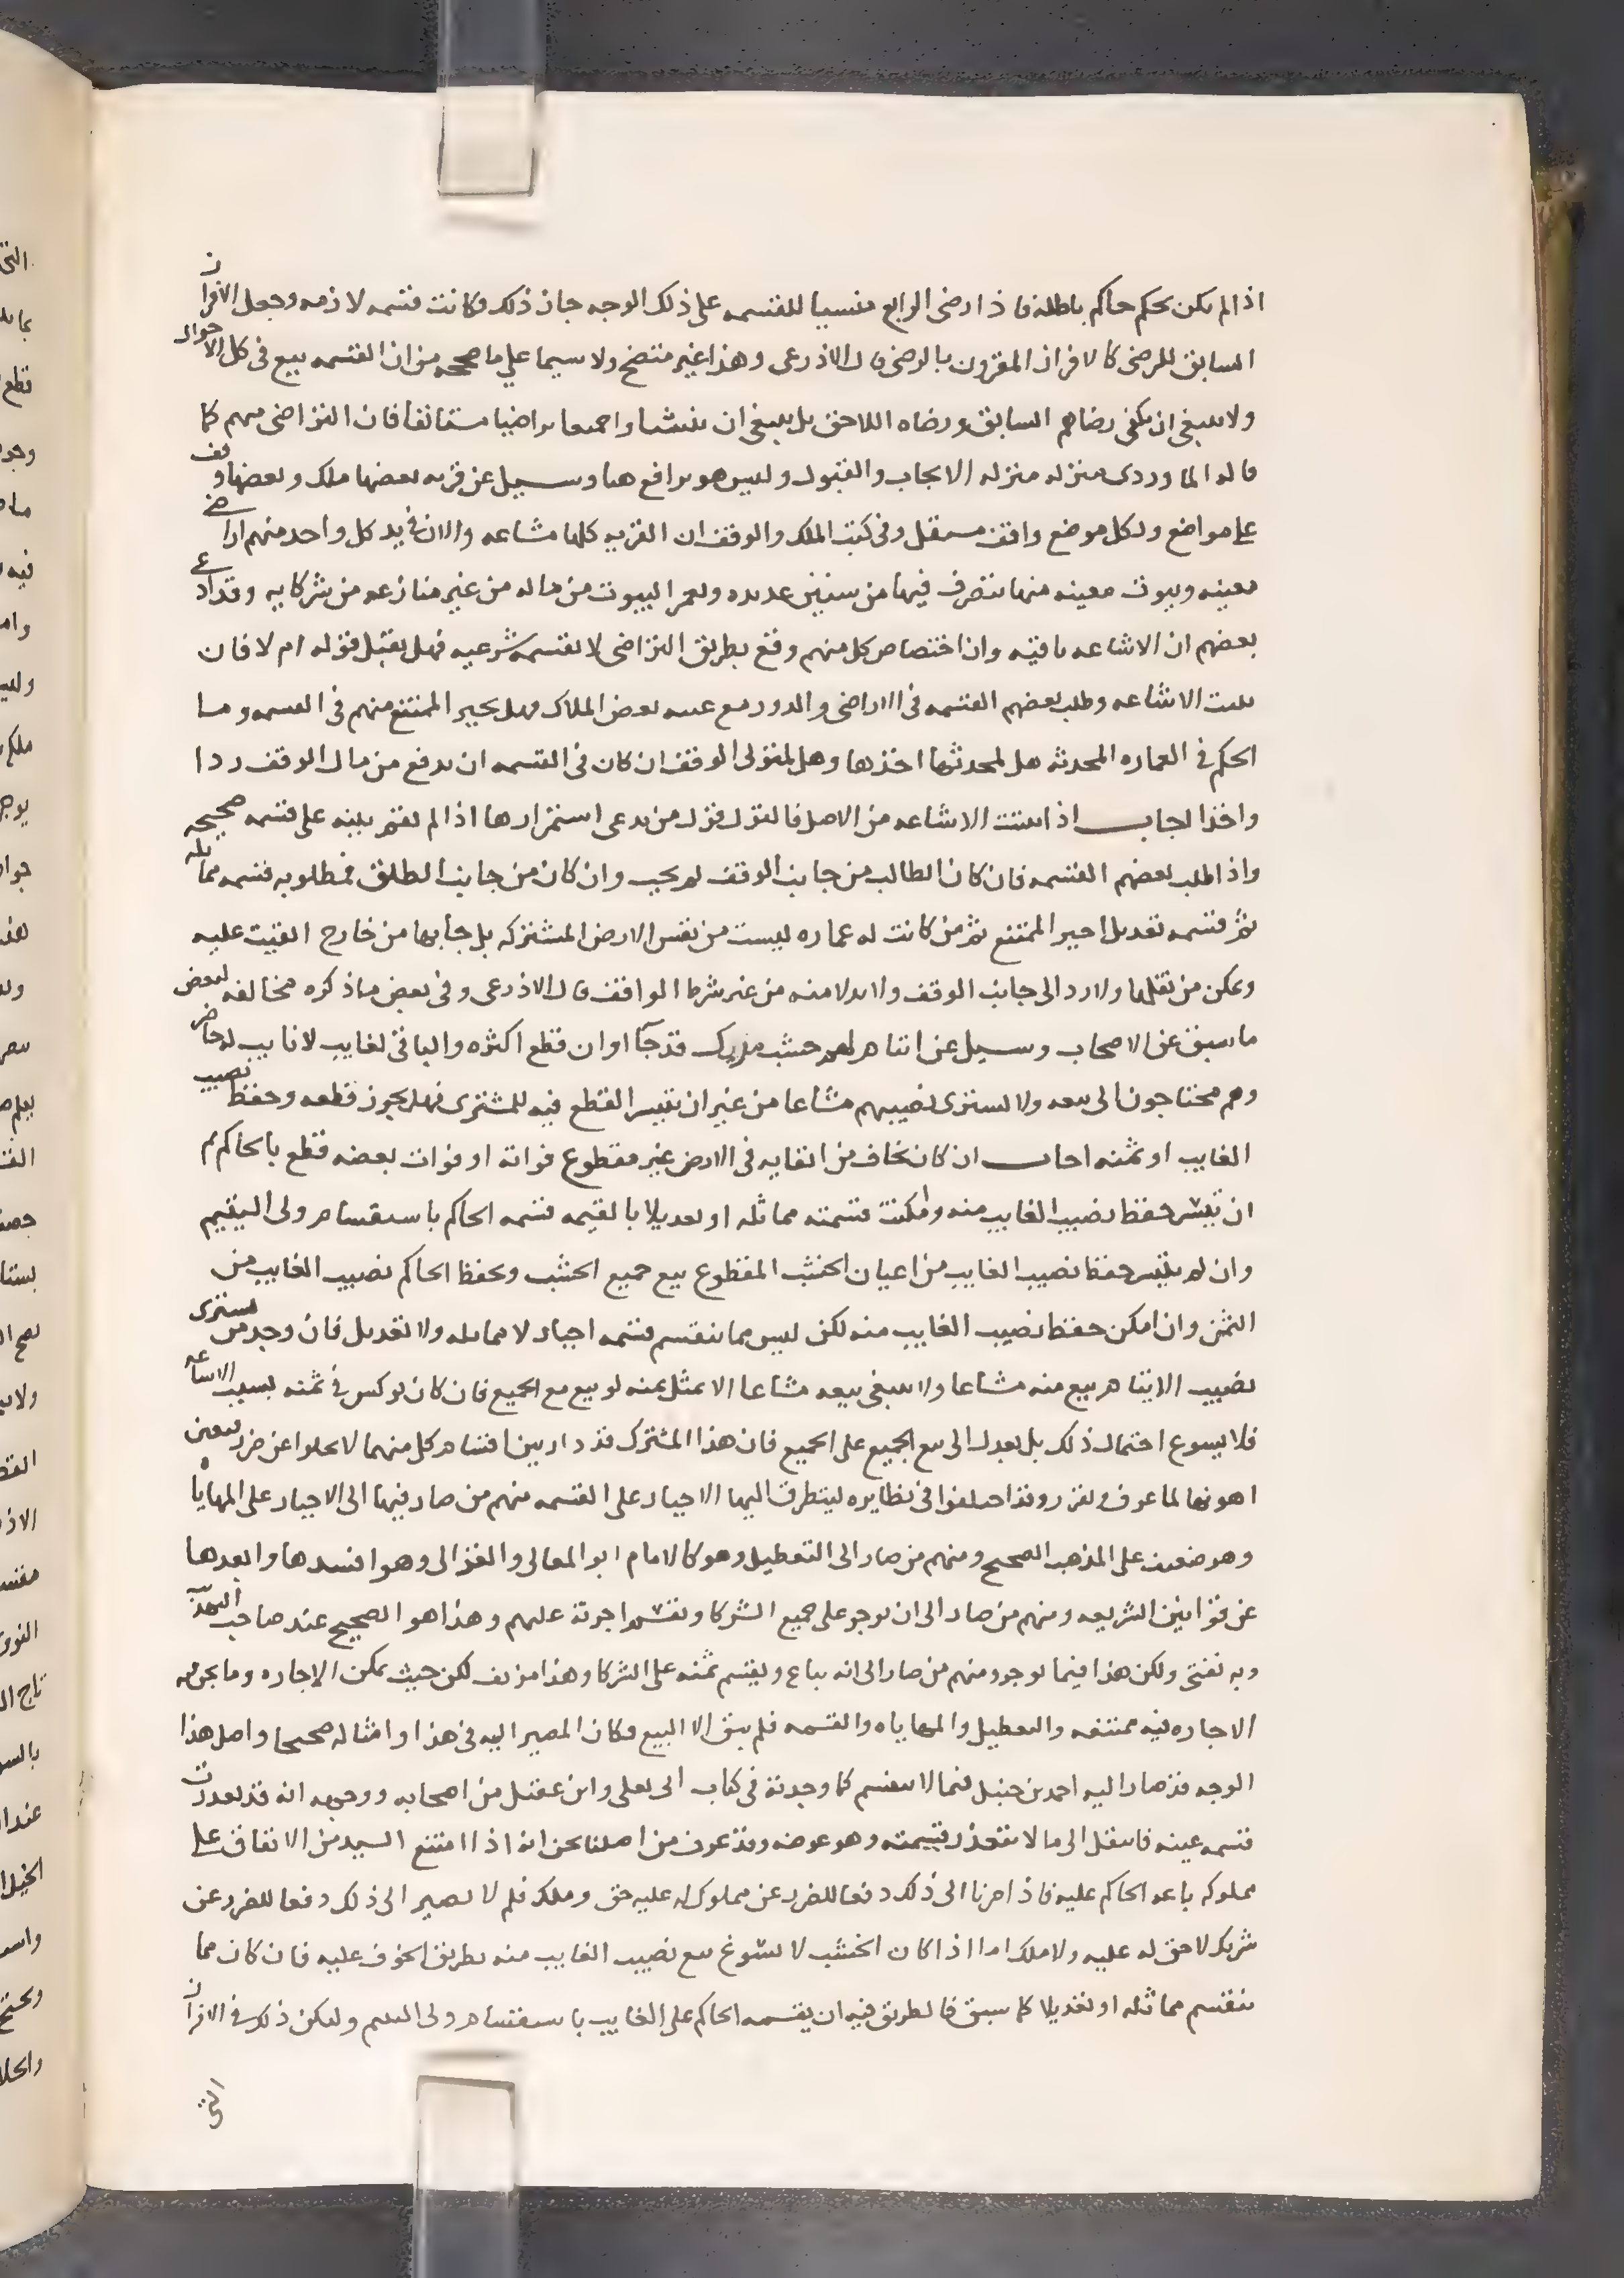 اذا لم يكن بحكم حاكم باطله فاذا رضى الرابع منسيا للقسمه على ذلك الوجه جاز ذلك وكانت قسمه لازمه وجعل الاقران
السابق للرضى كالافراز المقرون بالرضى قال الاذرعى وهذا غير متضح ولا سيما على ما صححه من ان القسمه بيع فى كل الاحوال
ولا ينبغى ان يكفى رضاهم السابق ورضاه اللاحق بل ينبغى ان ينشئا واجميعا تراضيا مستانفا فان التراضى منهم كما
قاله الماوردى منزله منزله الايجاب والقبول وليس هو براقع هنا وسيل عن قريه بعضها ملك وبعضها وقف
على مواضع ولكل موضع واقف مستقل وفى كتب الملك والوقف ان القريه كلها مشاعه والان فى يد كل واحد منهم اراضى
معينه وبيوت معينه منها يتصرف فيها من سنين عديده ويعمر البيوت من ماله من غير منازعه من شركايه وقد ادعى
بعضهم ان الاشاعه باقيه وان اختصاص كل منهم وقع بطريق التراضى لا بقسمه شرعيه فهل يقبل قوله ام لا فان
ثبت الاشاعه وطلب بعضهم القسمه فى الاراضى والدور مع غيبه بعض الملاك فهل يجبر الممتنع منهم فى القسمه وما
الحكم فى العماره المحدثه هل لمحدثها اخذها وهل لمتولى الوقف ان كان فى القسمه ان يدفع من مال الوقف ردا
واخذا اجاب اذا ثبتت الاشاعه من الاصل فالقول قول من يدعى استمرارها اذا لم تقم بينه على قسمه صحيحه
واذا طلب بعضهم القسمه فان كان الطالب من جانب الوقف لم يجب وان كان من جانب الطلق فمطلوبه قسمه مماثله
ثم قسمه تعديل اجبر الممتنع ثم من كانت له عماره ليست من نفس الارض المشتركه بل جابها من خارج القيت عليه
ويمكن من نقلها ولا رد الى جانب الوقف ولا بدلا منه من غير شرط الواقف قال الاذرعى وفى بعض ما ذكره مخالفه لبعض
ما سبق عن الاصحاب وسيل عن ايتام لهم خشب مدرك قد جآ اوان قطع اكثره والباقى لغايب لا نايب له حاضر
وهم محتاجون الى بيعه ولا يشترى نصيبهم مشاعا من غير ان يتيسر القطع فيه للمشترى فهل يجوز قطعه وحفظ نصيب
الغايب او ثمنه اجاب ان كان يخاف من ابقايه فى الارض غير مقطوع فواته او فوات بعضه قطع بالحاكم ثم
ان تيسر حفظ نصيب الغايب منه وامكنت قسمته مماثله او تعديلا بالقيمه قسمه الحاكم باستقسام ولى اليتيم
وان لم يتيسر حفظ نصيب الغايب من اعيان الخشب المقطوع بيع جميع الخشب ويحفظ الحاكم نصيب الغايب من
الثمن وان امكن حفظ نصيب الغايب منه لكن ليس مما ينقسم قسمه اجبار لا مماثله ولا تعديل فان وجد من يشترى
نصيب الايتام بيع منه مشاعا ولا ينبغى بيعه مشاعا الا بمثل ثمنه لو بيع مع الجميع فان كان يوكس فى ثمنه بسبب الاشاعه
فلا يسوغ احتمال ذلك بل يعدل الى بيع الجميع على الجميع فان هذا المشترك قد دار بين اقسام كل منهما لا يخلوا عن ضرر فتعين
اهونها لما عرف وتقرر وقد اختلفوا فى نظايره ليتطرق اليها الاجبار على القسمه منهم من صار فيها الى الاجبار على المهاياه
وهو ضعيف على المذهب الصحيح ومنهم من صار الى التعطيل وهو كالامام ابو المعالى والغزالى وهو افسدها وابعدها
عن قوانين الشريعه ومنهم من صار الى ان يوجر على جميع الشركا وتقسم اجرته عليهم وهذا هو الصحيح عند صاحب التهذيب
وبه نفتى ولكن هذا فيما يوجر ومنهم من صار الى انه يباع ويقسم ثمنه على الشركا وهذا مزيف لكن حيث تمكن الاجاره وما نحن فيه
الاجاره فيه ممتنعه والتعطيل والمهاياه والقسمه فلم يبق الا البيع فكان المصير اليه فى هذا وامثاله صحيحا واصل هذا
الوجه قد صار اليه احمد بن حنبل فيما لا ينقسم كما وجدته فى كتاب ابى يعلى وابن عقيل من اصحابه ووجهه انه قد تعذرت
قسمه عينه فانتقل الى ما لا يتعذر قسمته وهو عوضه وقد عرف من اصلنا نحن انه اذا امتنع السيد من الانفاق على
مملوكه باعه الحاكم عليه فاذا صرنا الى ذلك دفعا للضرر عن مملوك له عليه حق وملك فلم لا نصير الى ذلك دفعا للضرر عن
شريك لا حق له عليه ولا ملك اما اذا كان الخشب لا يسوغ بيع نصيب الغايب منه بطريق الخوف عليه فان كان مما
ينقسم مماثله او تعديلا كما سبق فالطريق فيه ان يقسمه الحاكم على الغايب باستقسام ولى اليتيم وليكن ذلك فى الاقران